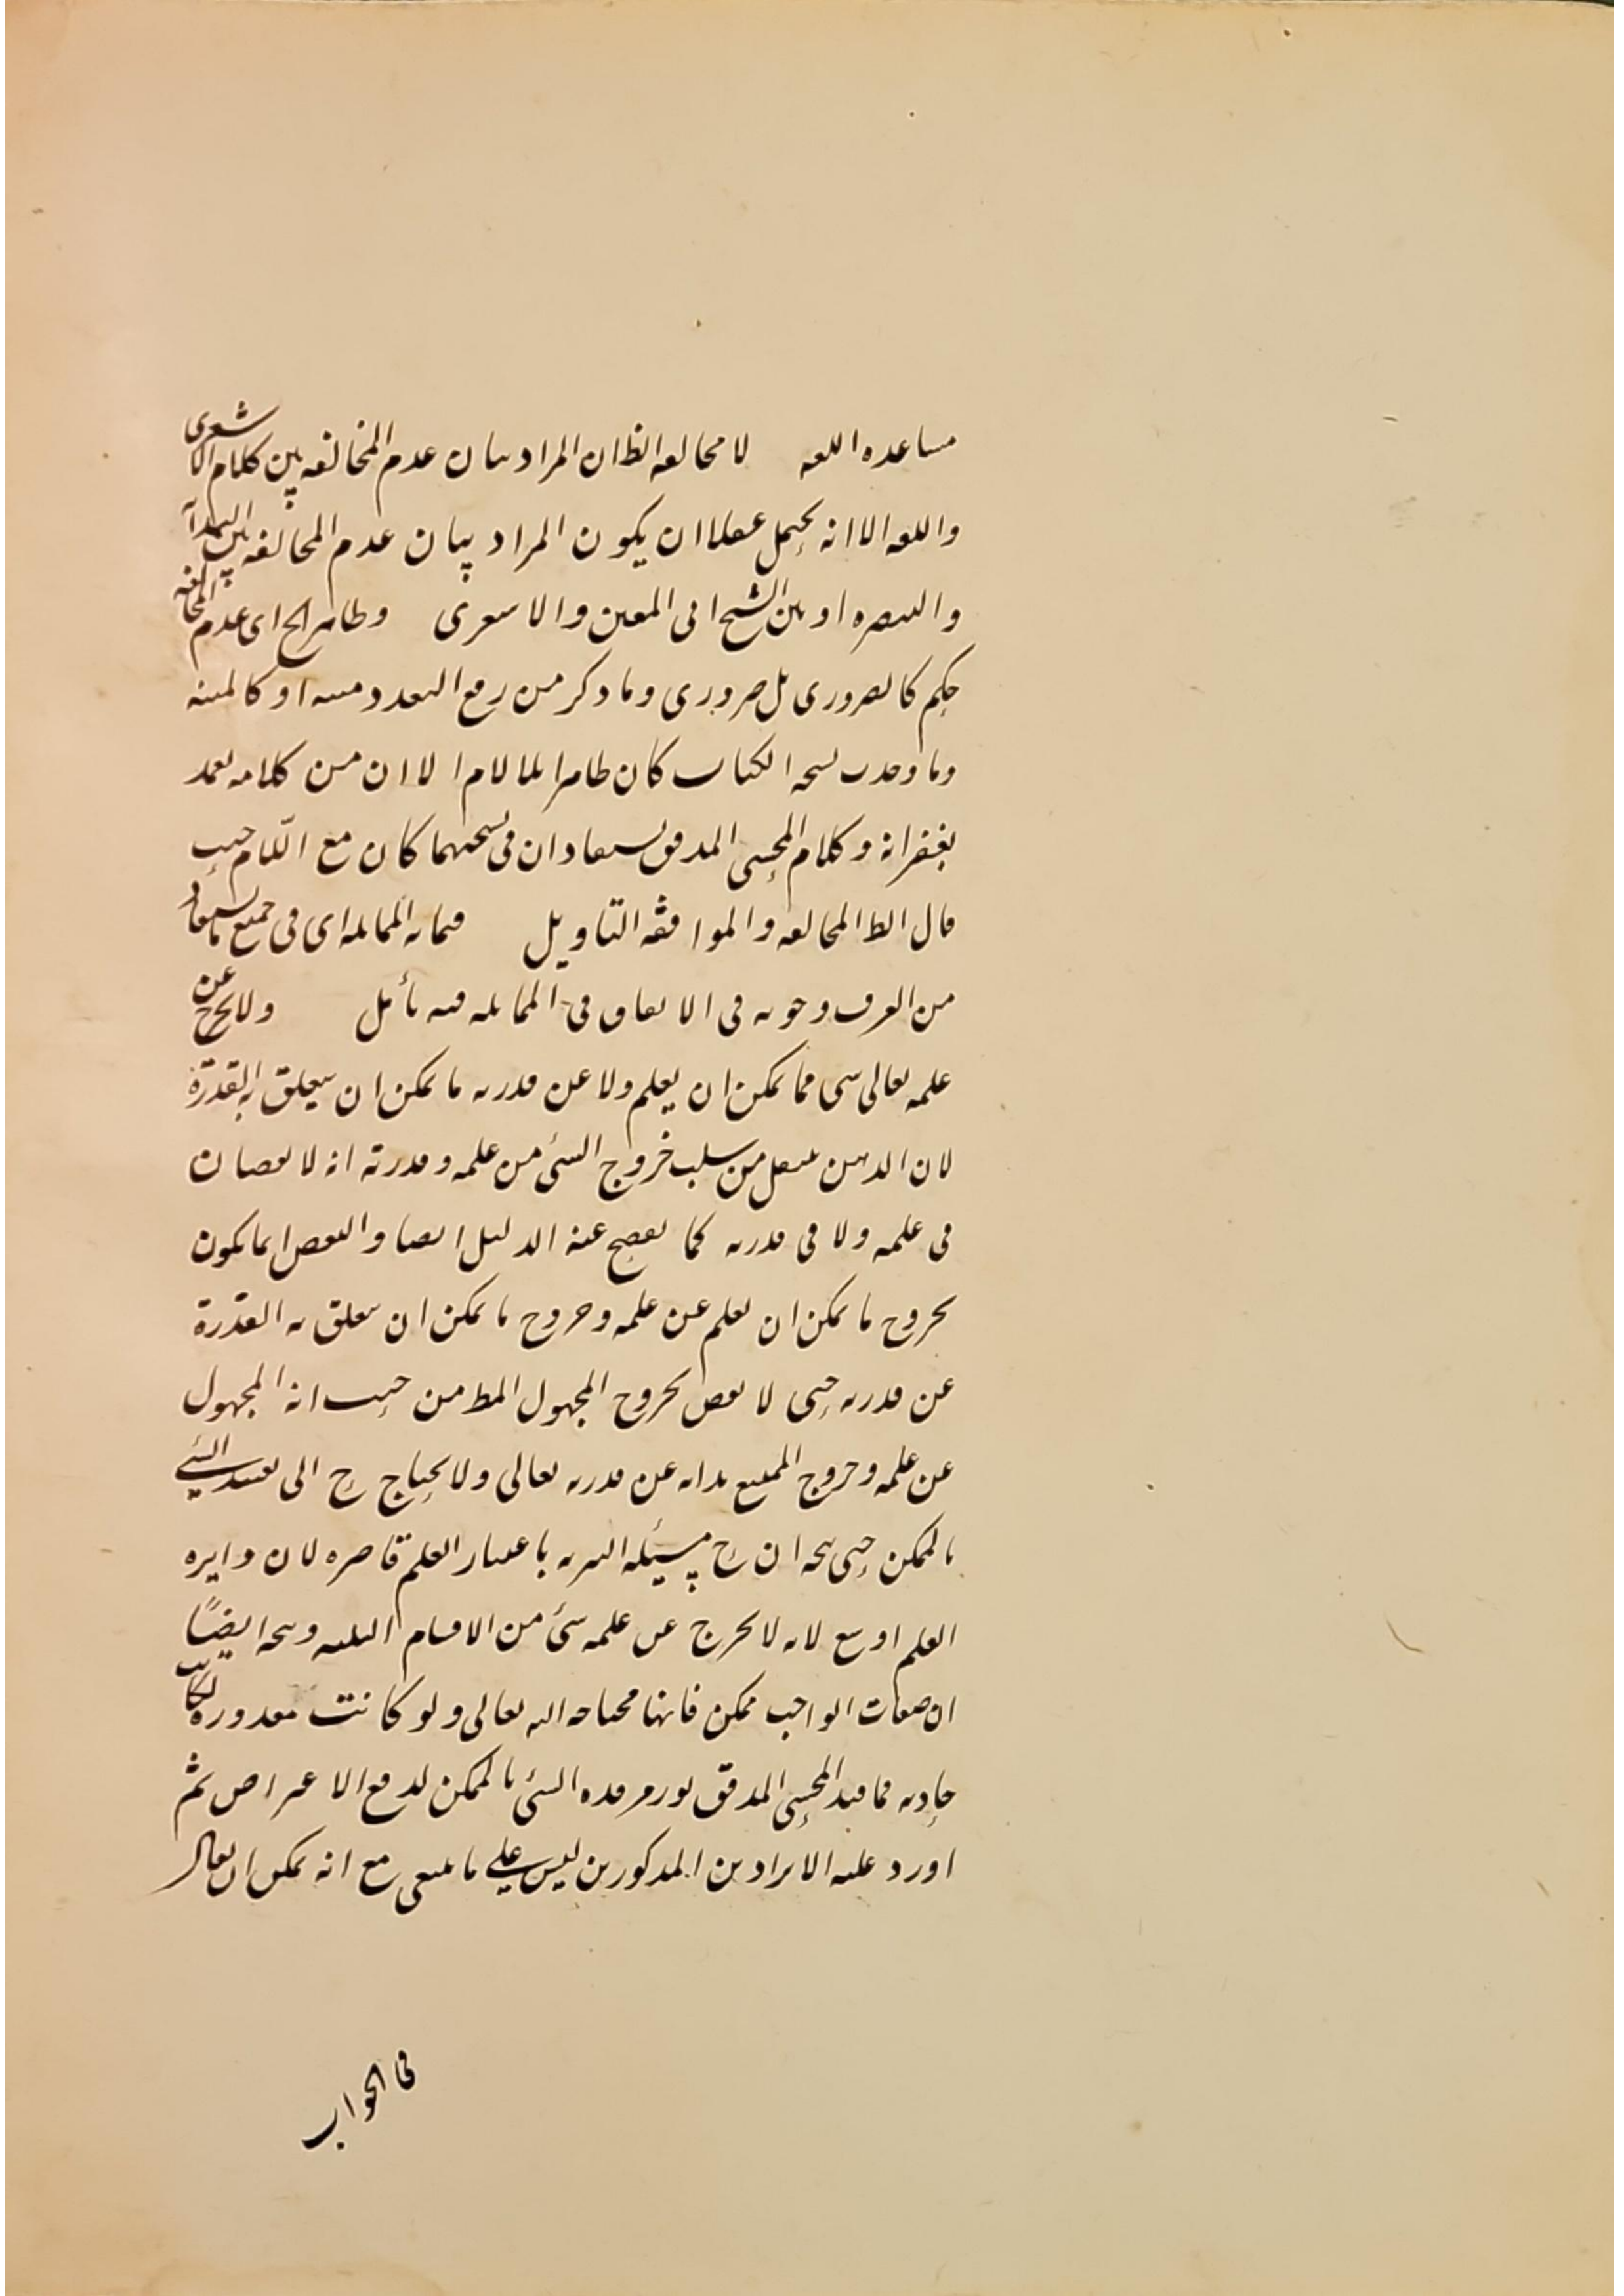 مساعده اللغه لا مخالفه الظ ان المراد بيان عدم المخالفه بين كلام الاشعرى
واللغه الا انه يحتمل عقلا ان يكون المراد بيان عدم المخالفه بين البداية
والتبصره او بين الشيخ ابى المعين والاشعرى وظاهر الخ اى عدم المخالفه
حكم كالضرورى بل ضرورى وما ذكر من رفع التعدد مبينه او كالمبينه
وما وجدت نسخه الكتاب كان ظاهرا بلا لام الا ان من كلامه تغمد
بغفرانه وكلام المحشى المدقق يستفاد ان فى نسختهما كان مع اللام حيث
قال الظ المخالفه والموافقه التاويل فما به المماثله اى فى جميع ما يستفاد
من العرف وجوبه فى الاتفاق فى المماثله فيه تأمل ولا يخرج عن
علمه تعالى شى مما يمكن ان يعلم ولا عن قدرته ما يمكن ان يتعلق به القدرة
لان الذهن ينتقل من سلب خروج الشئ من علمه وقدرته انه لا نقصان
فى علمه ولا فى قدرته كما يفصح عنه الدليل ايضا والنقص انما يكون
بخروج ما يمكن ان يعلم عن علمه وخروج ما يمكن ان يتعلق به القدرة
عن قدرته حتى لا نقص بخروج المجهول المط من حيث انه المجهول
عن علمه وخروج الممتنع بذاته عن قدرته تعالى ولا يحتاج ح الى تقييد الشئ
بالممكن حتى يتجه ان ح مسئله التنزيه باعتبار العلم قاصره لان دايره
العلم اوسع لانه لا يخرج عن علمه شئ من الاقسام الثلثه ويتجه ايضًا
ان صفات الواجب ممكن فانها محتاجه اليه تعالى ولو كانت مقدوره لكانت
حادثه فما قيد المحشى المدقق نور مرقده الشئ بالممكن لدفع الاعتراض ثم
اورد عليه الايرادين المذكورين ليس على ما ينبغى مع انه يمكن ان يقال
فى الجواب